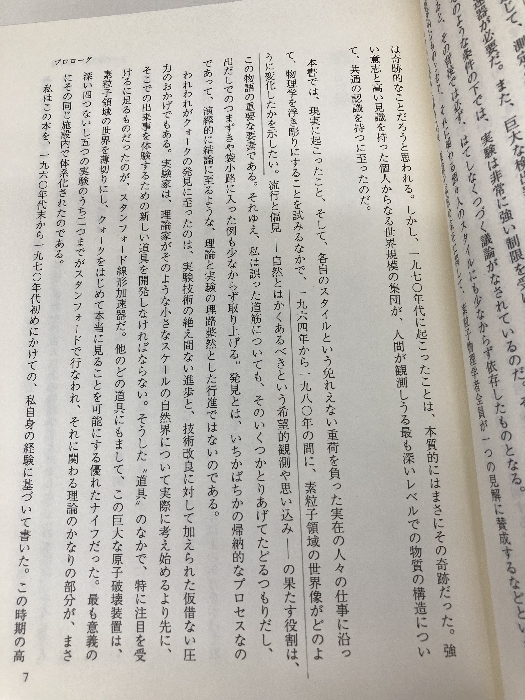 じて、測定
速器が必要だ。また、巨大な検出
のような条件の下では、実験は非常に強い制限を受
果てしなくつづく議論がなされているのだ。そ
々人のスタイルにも少なからず依存したものとなる。
素粒子物理学者全員が一つの見解に賛成するなどとい
は奇跡的なことだろうと思われる。しかし、一九七〇年代に起こったことは、本質的にはまさにその奇跡だった。強
い意志と高い見識を持った個人からなる世界規模の集団が、人間が観測しうる最も深いレベルでの物質の構造につい
て、共通の認識を持つに至ったのだ。
本書では、現実に起こったこと、そして、各自のスタイルという免れえない重荷を負った実在の人々の仕事に沿っ
て、物理学を浮き彫りにすることを試みるなかで、一九六四年から一九八〇年の間に、素粒子領域の世界像がどのよ
うに変化したかを示したい。流行と偏見――自然とはかくあるべきという希望的観測や思い込み――の果たす役割は、
この物語の重要な要素である。それゆえ、私は誤った道筋についても、そのいくつかとりあげてたどるつもりだし、
出だしでのつまずきや袋小路に入った例も少なからず取り上げる。発見とは、いちかばちかの帰納的なプロセスなの
であって、演繹的に結論に至るような、理論と実験の理路整然とした行進ではないのである。
われわれがクォークの発見に至ったのは、実験技術の絶え間ない進歩と、技術改良に対して加えられた仮借ない圧
力のおかげでもある。実験家は、理論家がそのような小さなスケールの自然界について実際に考え始めるより先に、
そこでの出来事を体験するための新しい道具を開発しなければならない。そうした〝道具〟のなかで、特に注目を受
けるに足るものだったのが、スタンフォード線形加速器だ。他のどの道具にもまして、この巨大な原子破壊装置は、
素粒子領域の世界を薄切りにし、クォークをはじめて本当に見ることを可能にする優れたナイフだった。最も意義の
深い四つないし五つの実験のうち二つまでがスタンフォードで行なわれ、それに関わる理論のかなりの部分が、まさ
にその同じ施設内で体系化されたのである。
私はこの本を、一九六〇年代末から一九七〇年代初めにかけての、私自身の経験に基づいて書いた。この時期の高
プロローグ
7